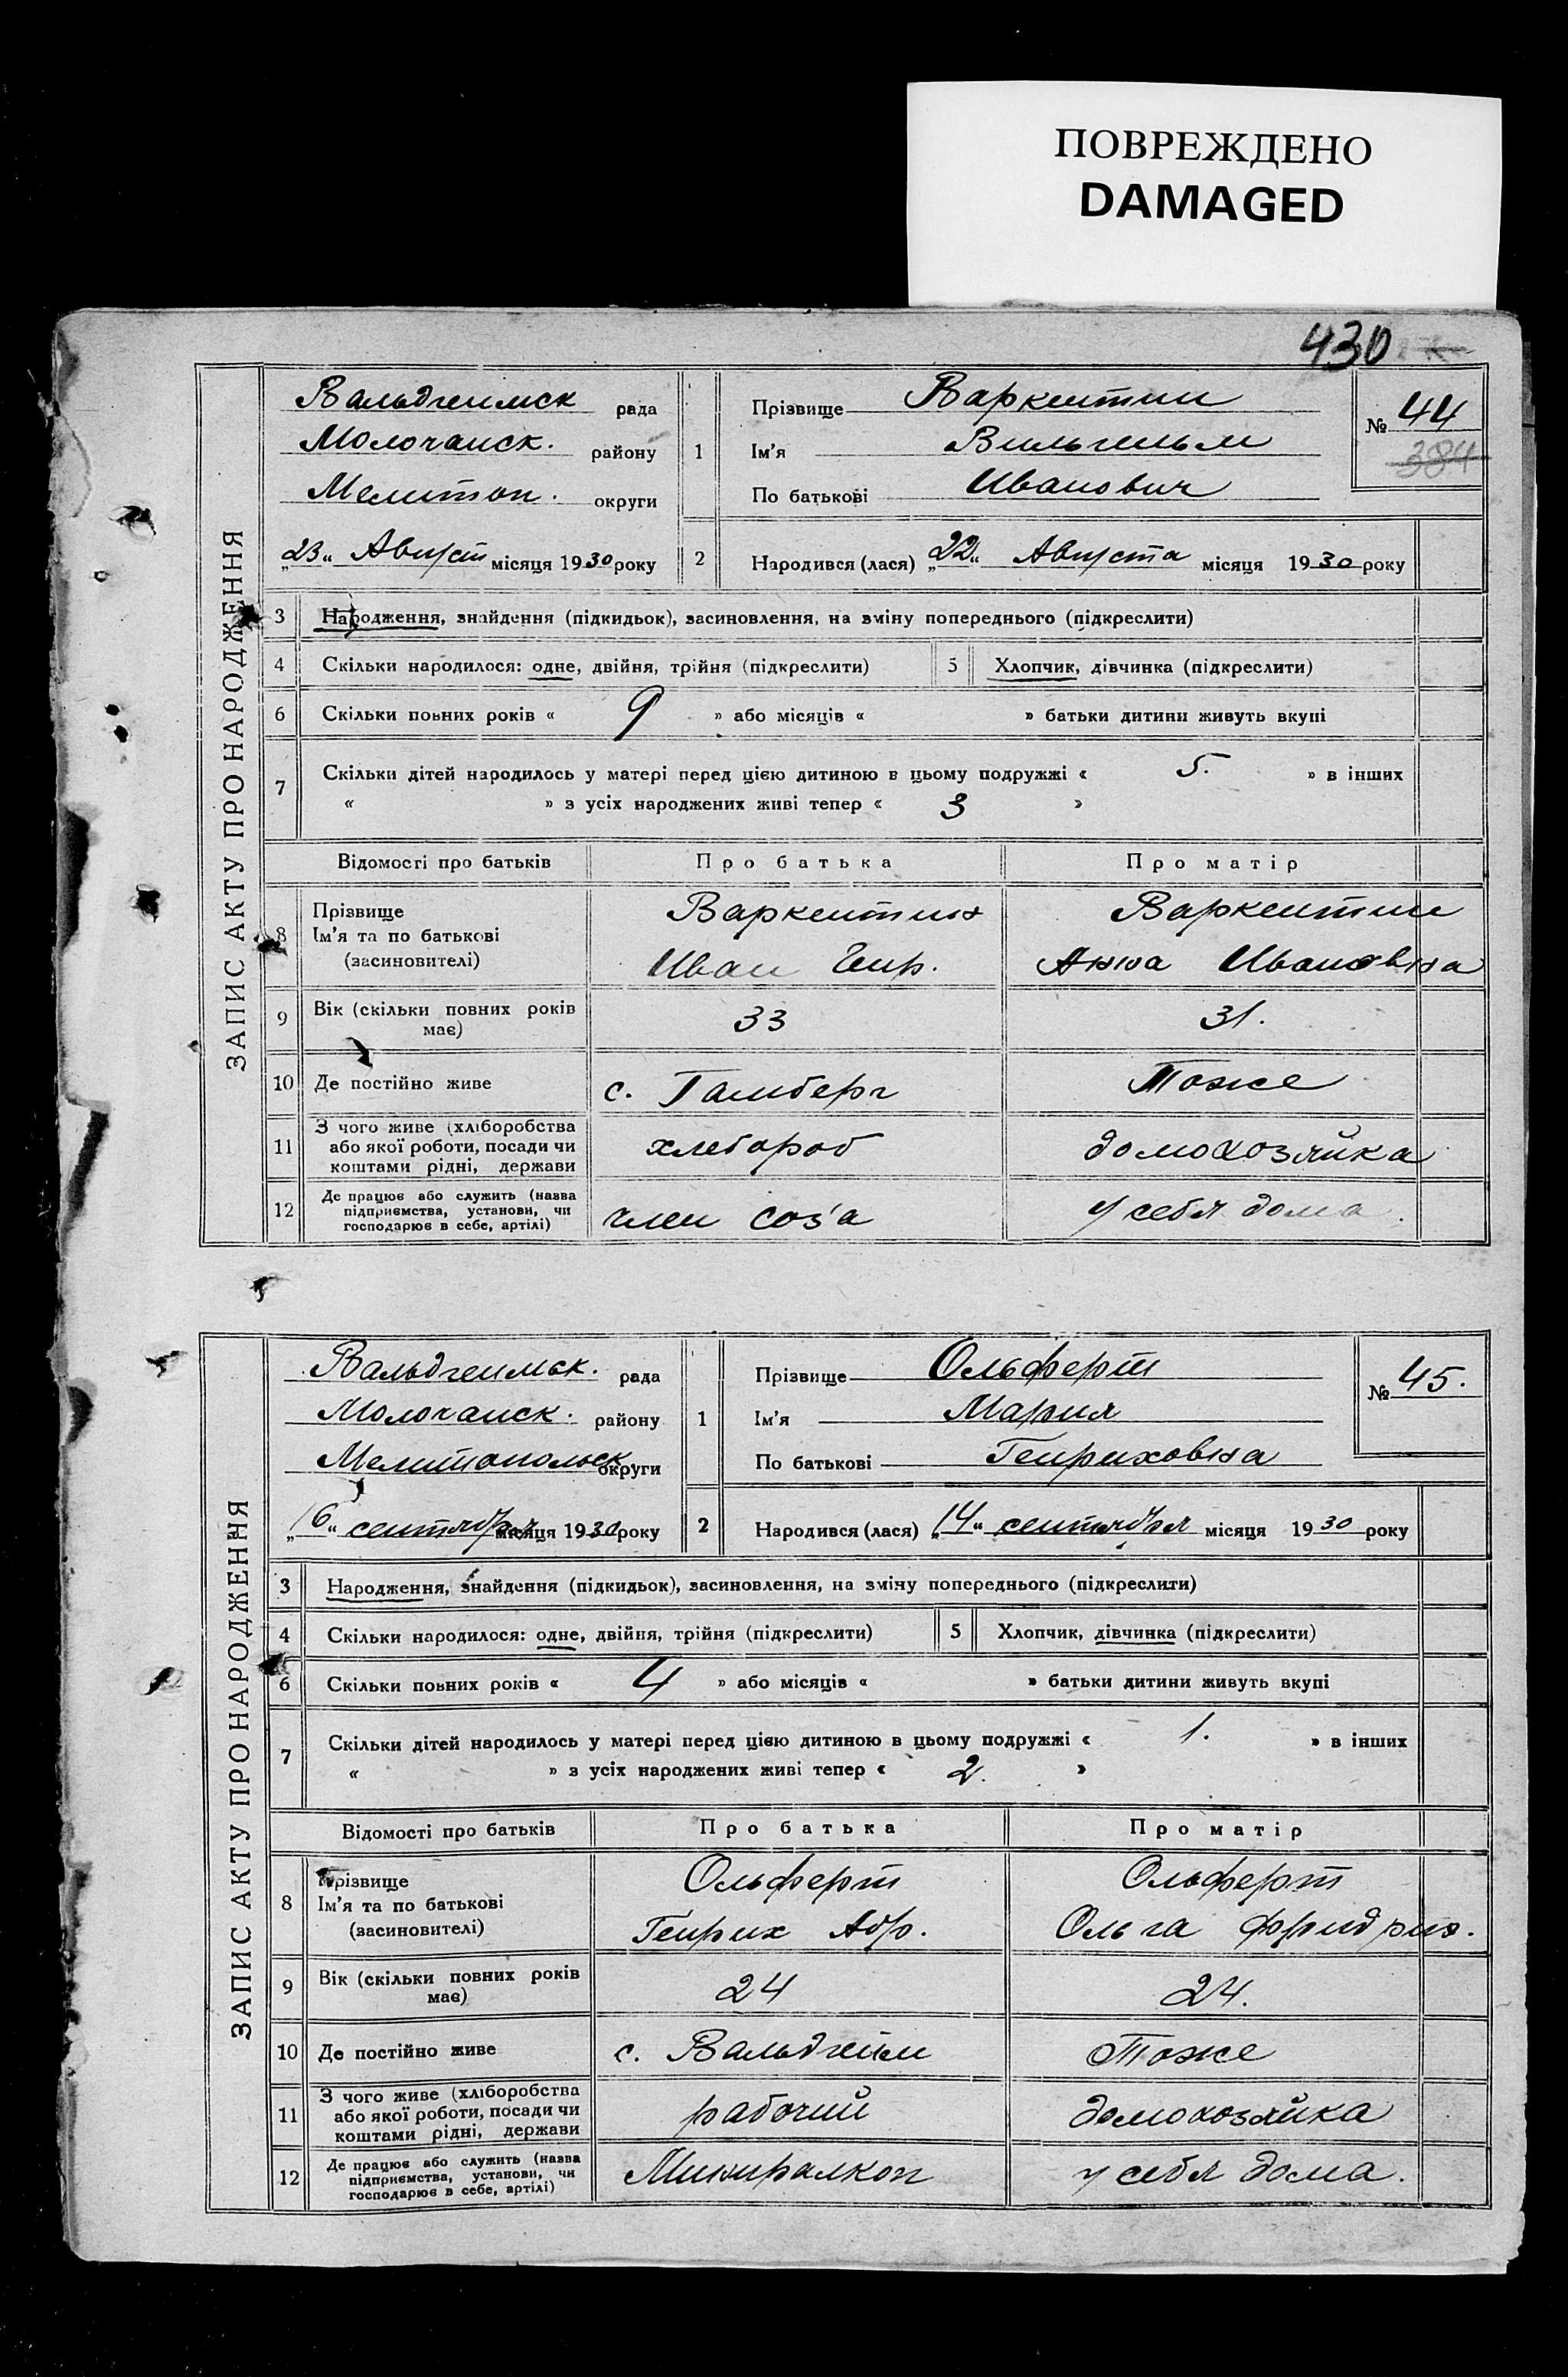 ПОВРЕЖДЕНО
DAMAGED
430
ЗАПИС АКТУ ПРО НАРОДЖЕННЯ
Вальдгеимск рада
Молочанск. району
Мелитоп. округи
„23“ Август місяця 1930 року
1 Прізвище Варкентин
Ім'я Вильгельм
По батькові Иванович
№ 44
384
2 Народився (лася) „22“ Августа місяця 1930 року
3 Народження, знайдення (підкидьок), засиновлення, на зміну попереднього (підкреслити)
4 Скільки народилося: одне, двійня, трійня (підкреслити) 5 Хлопчик, дівчинка (підкреслити)
6 Скільки повних років « 9 » або місяців « » батьки дитини живуть вкупі
7 Скільки дітей народилось у матері перед цією дитиною в цьому подружжі « 5. » в інших
« » з усіх народжених живі тепер « 3 »
Відомості про батьків Про батька Про матір
8 Прізвище Варкентин Варкентин
Ім'я та по батькові Иван Генр. Анна Ивановна
(засиновителі)
9 Вік (скільки повних років має) 33 31.
10 Де постійно живе с. Гамберг Тоже
11 З чого живе (хліборобства
або якої роботи, посади чи хлебороб домохозяйка
коштами рідні, держави
12 Де працює або служить (назва
підприємства, установи, чи член соз'а у себя дома.
господарює в себе, артілі)
ЗАПИС АКТУ ПРО НАРОДЖЕННЯ
Вальдгеимск. рада
Молочанск. району
Мелитопольск. округи
„16“ сентября місяця 1930 року
1 Прізвище Ольферт
Ім'я Мария
По батькові Генриховна
№ 45.
2 Народився (лася) „14“ сентября місяця 1930 року
3 Народження, знайдення (підкидьок), засиновлення, на зміну попереднього (підкреслити)
4 Скільки народилося: одне, двійня, трійня (підкреслити) 5 Хлопчик, дівчинка (підкреслити)
6 Скільки повних років « 4 » або місяців « » батьки дитини живуть вкупі
7 Скільки дітей народилось у матері перед цією дитиною в цьому подружжі « 1. » в інших
« » з усіх народжених живі тепер « 2. »
Відомості про батьків Про батька Про матір
8 Прізвище Ольферт Ольферт
Ім'я та по батькові Генрих Абр. Ольга Фридрих.
(засиновителі)
9 Вік (скільки повних років має) 24 24.
10 Де постійно живе с. Вальдгейм Тоже
11 З чого живе (хліборобства
або якої роботи, посади чи рабочий домохозяйка
коштами рідні, держави
12 Де працює або служить (назва
підприємства, установи, чи у себя дома.
господарює в себе, артілі)